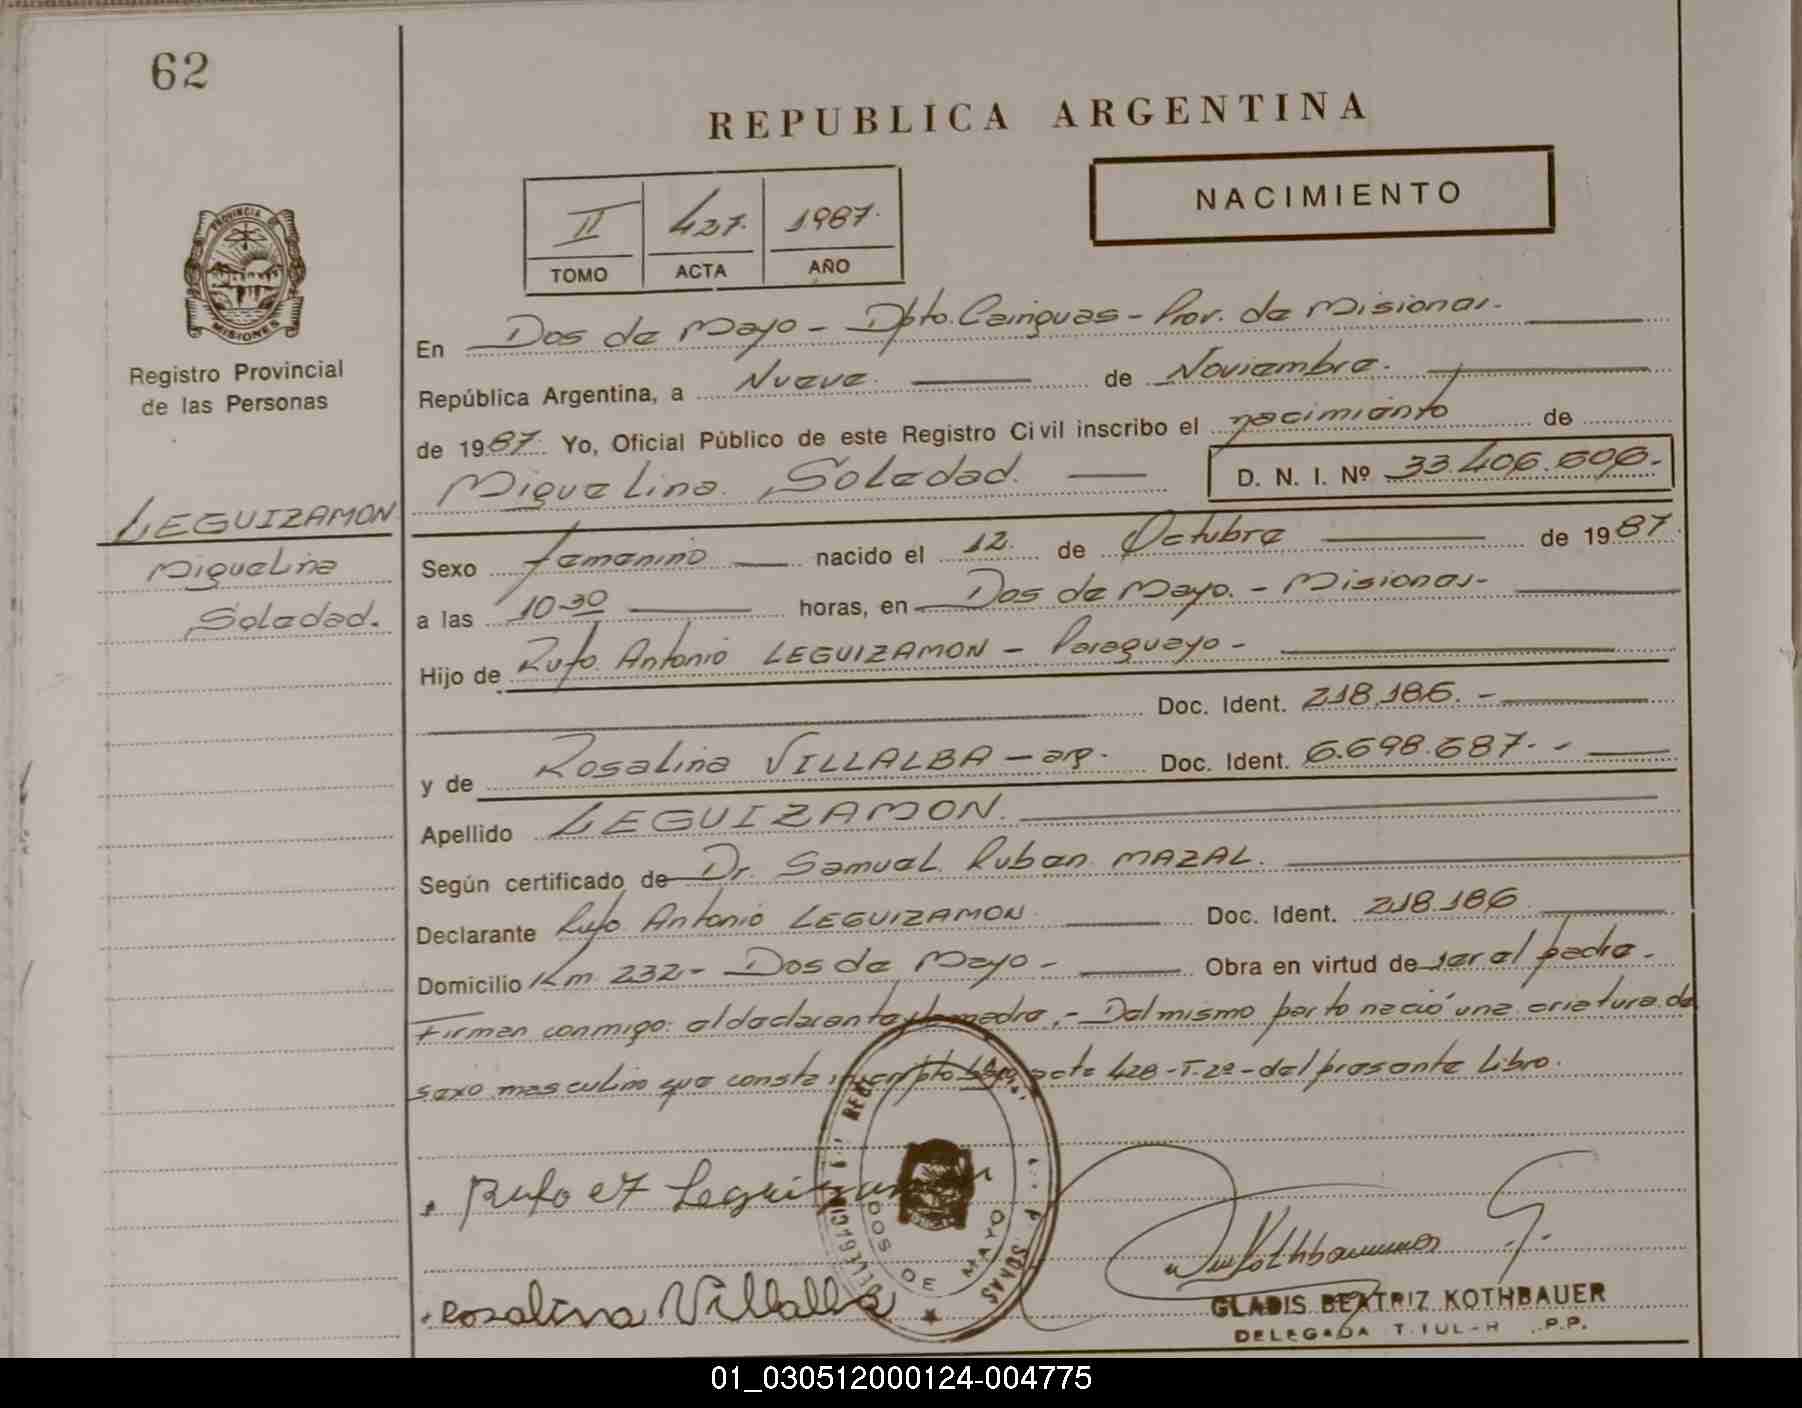 62
REPUBLICA ARGENTINA
NACIMIENTO
II 427. 1987.
TOMO ACTA AÑO
PROVINCIA DE
MISIONES
Registro Provincial
de las Personas
LEGUIZAMON
Miguelina
Soledad.
En Dos de Mayo - Dpto. Cainguas - Prov. de Misiones.
República Argentina, a Nueve. de Noviembre.
de 1987. Yo, Oficial Público de este Registro Civil inscribo el nacimiento de
Miguelina Soledad. D. N. I. Nº 33.406.606.-
Sexo femenino nacido el 12. de Octubre de 1987.
a las 10-30 horas, en Dos de Mayo. - Misiones.-
Hijo de Rufo Antonio LEGUIZAMON - Paraguayo -
Doc. Ident. 218.186. -
y de Rosalina VILLALBA - arg. Doc. Ident. 6.698.687. -
Apellido LEGUIZAMON.
Según certificado de Dr. Samuel Ruben MAZAL.
Declarante Rufo Antonio LEGUIZAMON Doc. Ident. 218.186
Domicilio Km 232 - Dos de Mayo - Obra en virtud de ser el padre -
Firman conmigo: el declarante y la madre.- Del mismo parto nació una criatura de
sexo masculino que consta inscripto bajo acta 428-T.2º- del presente Libro.
Rufo Leguizamon
DOS DE MAYO
Rosalina Villalba
Kothbauer G.
GLADIS BEATRIZ KOTHBAUER
DELEGADA R.P.P.
01_030512000124-004775